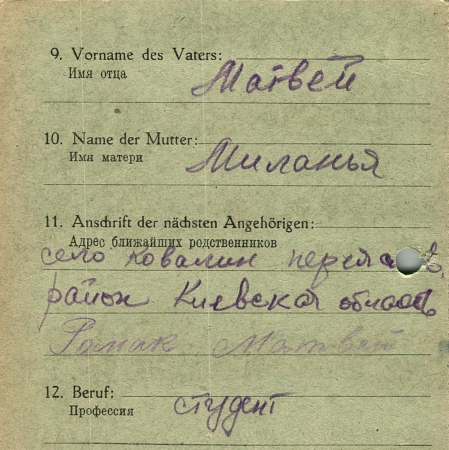 9. Vorname des Vaters:
Имя отца
Матвей
10. Name der Mutter:
Имя матери
Миланья
11. Anschrift der nächsten Angehörigen:
Адрес ближайших родственников
село ковалин переяслов,
район Киевская область
Матвей
12. Beruf:
Профессия
студент